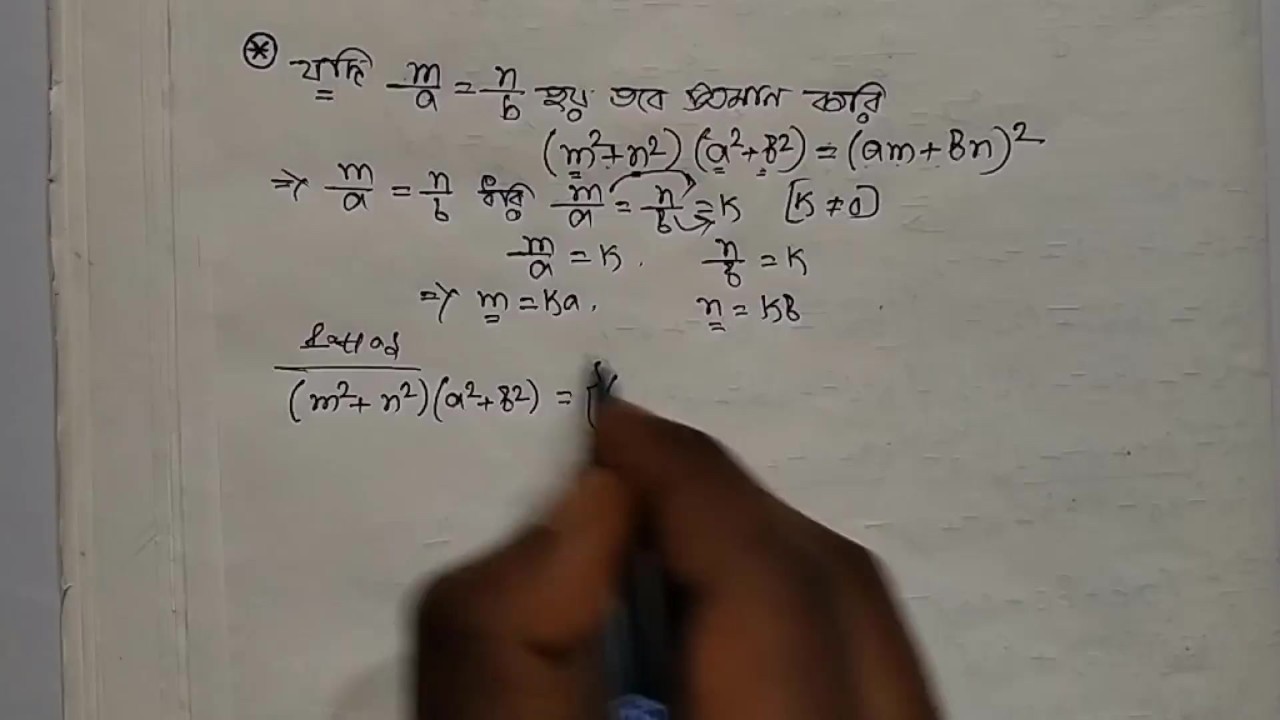 ⊛ যদি m/a = n/b হয় তবে প্রমান করি
(m²+n²)(a²+b²) = (am+bn)²
⇒ m/a = n/b ধরি m/a = n/b = K [K ≠ 0]
m/a = K. n/b = K
⇒ m = Ka, n = Kb
(m²+n²)(a²+b²) =